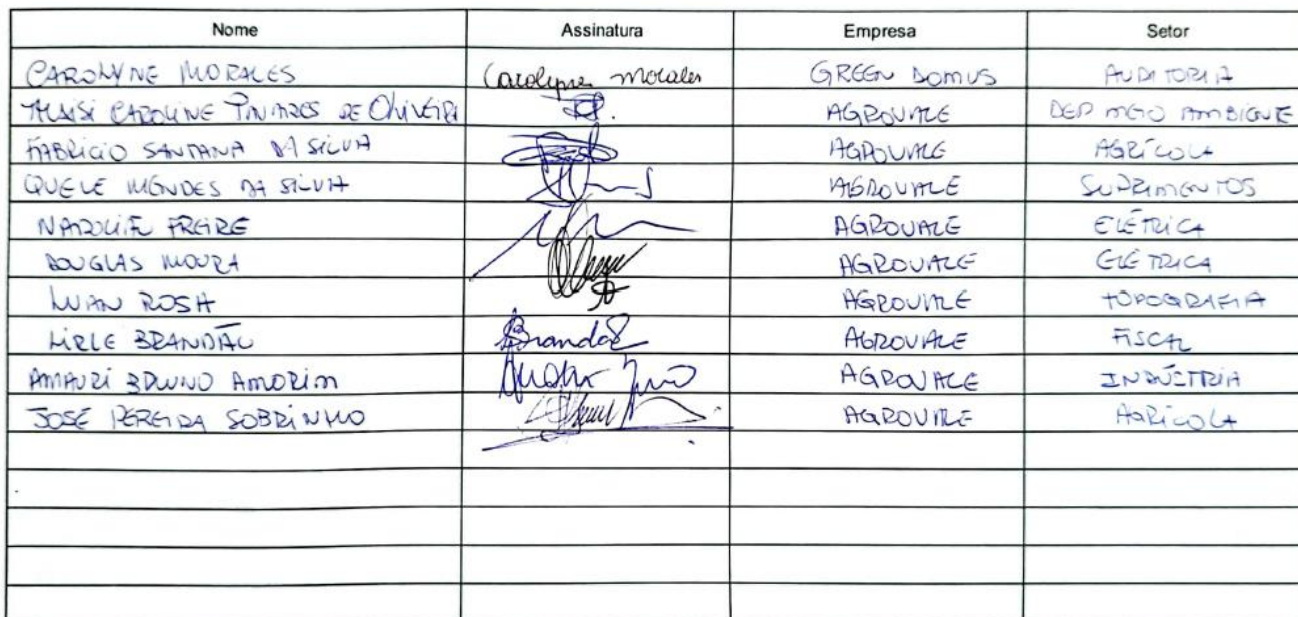 Nome Assinatura Empresa Setor
CAROLYNE MORALES Carolyne Morales GREEN DOMUS AUDITORIA
CAROLINE DE OLIVEIRA AGROVALE DEP MEIO AMBIENTE
FABRICIO SANTANA DA SILVA AGROVALE AGRÍCOLA
QUELE MENDES DA SILVA AGROVALE SUPRIMENTOS
FREIRE AGROVALE ELÉTRICA
DOUGLAS MOURA AGROVALE ELÉTRICA
LUAN ROSA AGROVALE TOPOGRAFIA
LIRLE BRANDÃO Brandão AGROVALE FISCAL
AMAURI BRUNO AMORIM AGROVALE INDÚSTRIA
JOSÉ PEREIRA SOBRINHO AGROVALE AGRÍCOLA